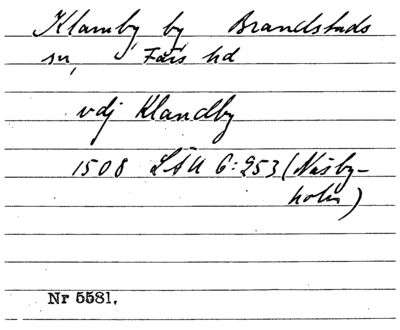 Klamby by Brandstads
sn, Färs hd
vdj Klandby
1508 LÅU 6:253 (Näsby-
holm)
Nr 5581.